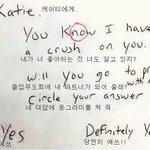 Katie, 케이티에게,
You Know I have
a crush on you.
내가 너 좋아하는 것 너도 알고 있지?
will you go to pro
with m
졸업무도회에 내 파트너가 되어 줄래?
Circle your answer
네 대답에 동그라미를 쳐 줘.
Yes Definitely Y
예쓰 당연히 예쓰!!